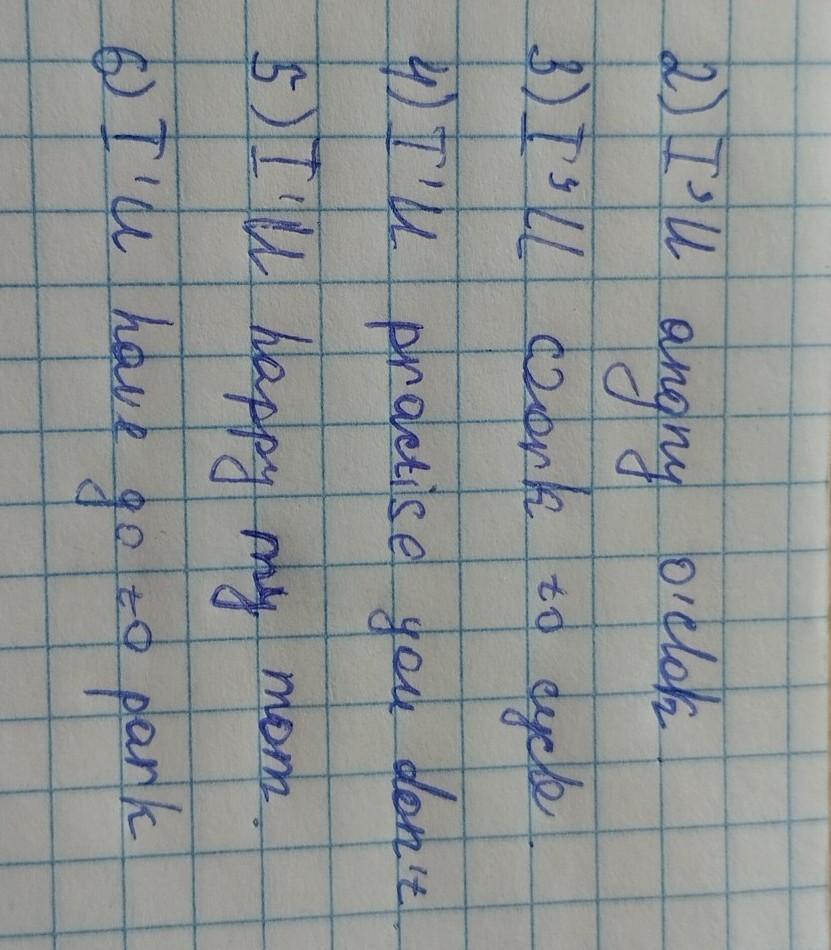 2) I'll angny o'clok.
3) I'll Work to cycle.
4) I'll practise you don't.
5) I'll happy my mom.
6) I'll have go to park